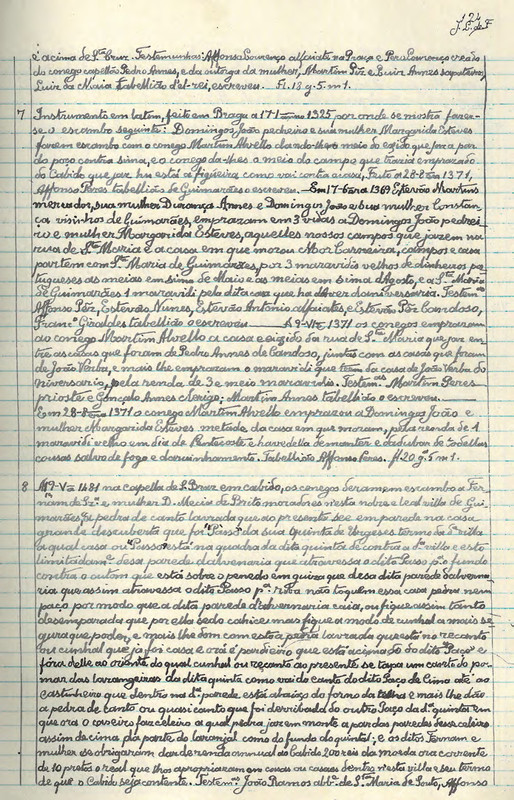 124
J. L. de F.
é acima de Stª Cruz. Testemunhas: Affonso Lourenço alfaiate na Praça e Pero Lourenço creado
do conego capellão Pedro Annes, e da outorga da mulher, Martim Piz e Luiz Annes sapateiro,
Luiz da Maia tabellião d'el-rei, escreveu. Fl. 18 g. 5 m 1.
7 Instrumento em latim, feito em Braga a 17-1 1325 por onde se mostra fazer-
se o escambo seguinte: Domingos João pedreiro e sua mulher Margarida Esteves
fazem escambo com o conego Martim Alvello dando-lhe o meio do eixido que jaz a par
do poço contra sima, e o conego dá-lhes o meio do campo que trazia emprazado
do Cabido que jaz hu está a figueira como vai contra a casa. Feito a 28-8 1371,
Affonso Peres tabellião de Guimarães o escreveu. Em 17-6 1369 Estevão Martins
mercador, sua mulher Durança Annes e Domingos João e sua mulher Constan-
ça visinhos de Guimarães, emprazam em 3 vidas a Domingos João pedrei-
ro e mulher Margarida Esteves, aquelles nossos campos que jazem na
rua de Stª Maria e a casa em que morou Mor Carneira, campos e casa
partem com Stª Maria de Guimarães, por 3 maravidis velhos de dinheiros por-
tugueses as meias em sima de Maio e as meias em sima d'Agosto, e a Stª Maria
de Guimarães 1 maravidi pela dita casa que ha d'haver d'anniversaria. Testemªs
Affonso Póz, Estevão Annes, Estevão Antonio alfaiates e Estevão Póz Cardoso,
Francº Giraldes tabellião o escreveu. A 9-VI 1371 os conegos emprazam
ao conego Martim Alvello a casa e eixido da rua de Stª Maria que jaz en-
tre as casas que foram de Pedro Annes de Candoso, juntas com as casas que foram
de João Verba, e mais lhe emprazam o maravidi que tem da casa de João Verba do
niversario, pela renda de 3 e meio maravidis. Testem.as Martim Peres
prioste e Gonçalo Annes clerigo; Martim Annes tabellião o escreveu.
Em 28-8 1371 o conego Martim Alvello emprazou a Domingos João e
mulher Margarida Esteves metade da casa em que moram, pela renda de 1
maravidi velho em dia de Pentecoste e havedella de manter e d'adubar de todallas
cousas salvo de fogo e d'arruinhamento. Tabellião Affonso Peres. fl. 20 g. 5 m 1.
8 A 9-V- 1481 na capella de S. Braz em cabido, os conegos deram escambo a Fer-
nam de Szª e mulher D. Mecia de Brito moradores n'esta nobre e leal villa de Gui-
marães, a pedra de canto lavrada que ao presente see em parede na casa
grande descuberta que foi "Passo" da sua Quinta de Urgezes termo da dª villa
a qual casa ou "Passo" está na quadra da dita quinta de contra a dª villa e está
limitadamᵗᵉ desa parede d'alvenaria que atravessa o dito Passo pª o fundo
contra o outam que está sobre o penedo em guiza que desa dita parede d'alvena-
ria que assim atravessa o dito Passo pª riba nõ toquem essa casa pedra nem
paço por modo que a dita parede d'alvernaria caia, ou fique assim tanto
desemparada que por ella sedo cahir e mas fique a modo de cunhal a mais se-
gura que poder, e mais lhe dam com esta a pedra lavrada que está no recanto
ou cunhal que já foi casa e ora é pardieiro que está acima do dito Paço e
fóra delle ao oriente do qual cunhal ou reçanto ao presente se tapa um canto do po-
mar das larangeiras da dita quinta como vai do canto do dito Paço de Cima até ao
castanheiro que dentro na dª parede está abaixo do forno da telha e mais lhe dão
a pedra de canto ou quasi canto que foi derribada do outro Paço da dª quinta em
que ora o caseiro faz celeiro a qual pedra jaz em monte a par das paredes desse celeiro
assim de cima da parte do laranjal como do fundo do quintal; e os ditos Fernam e
mulher se obrigaram dar de renda annual ao Cabido 200 reis da moeda ora corrente
de 10 pretos o real que lhos apropriaram em cousas ou casaes dentro nesta villa e seu termo
de que o Cabido seja contente. Testem.as João Ramos abbᵉ de S. Maria de Souto, Affonso